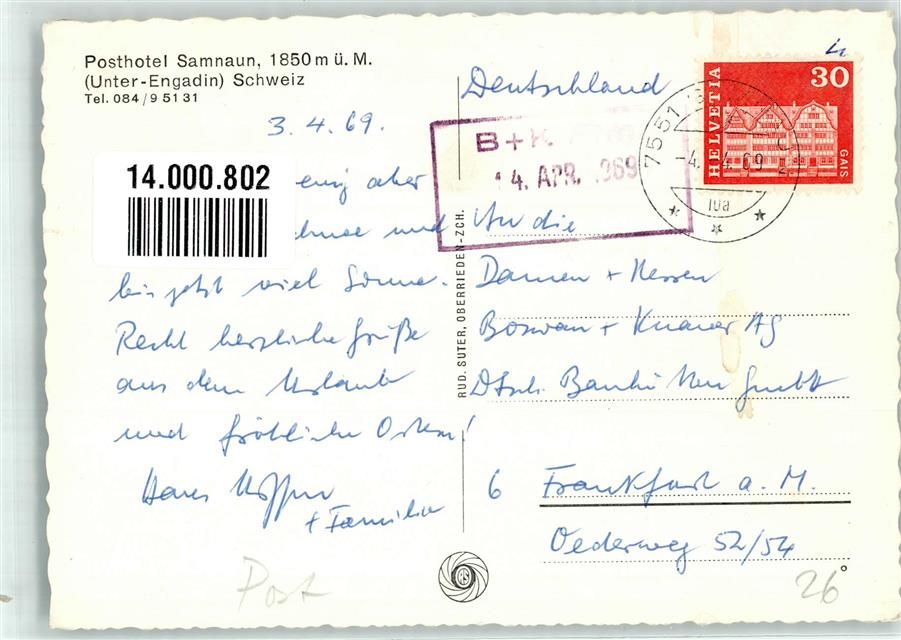 Posthotel Samnaun, 1850 m ü. M.
(Unter-Engadin) Schweiz
Tel. 084/9 51 31
3. 4. 69.
14.000.802
aber
und
bis jetzt viel Sonne.
Recht herzliche Grüße
aus dem Urlaub
und fröhliche Ostern!
Hans
+ Familie
Post
RUD. SUTER, OBERRIEDEN-ZCH.
Deutschland
B+K
14. APR. 1969
HELVETIA
30
GAIS
7551
-4. 4. 69
An die
Damen + Herren
Boswau + Knauer AG
Dtsch. GmbH
6 Frankfurt a. M.
Oederweg 52/54
26°